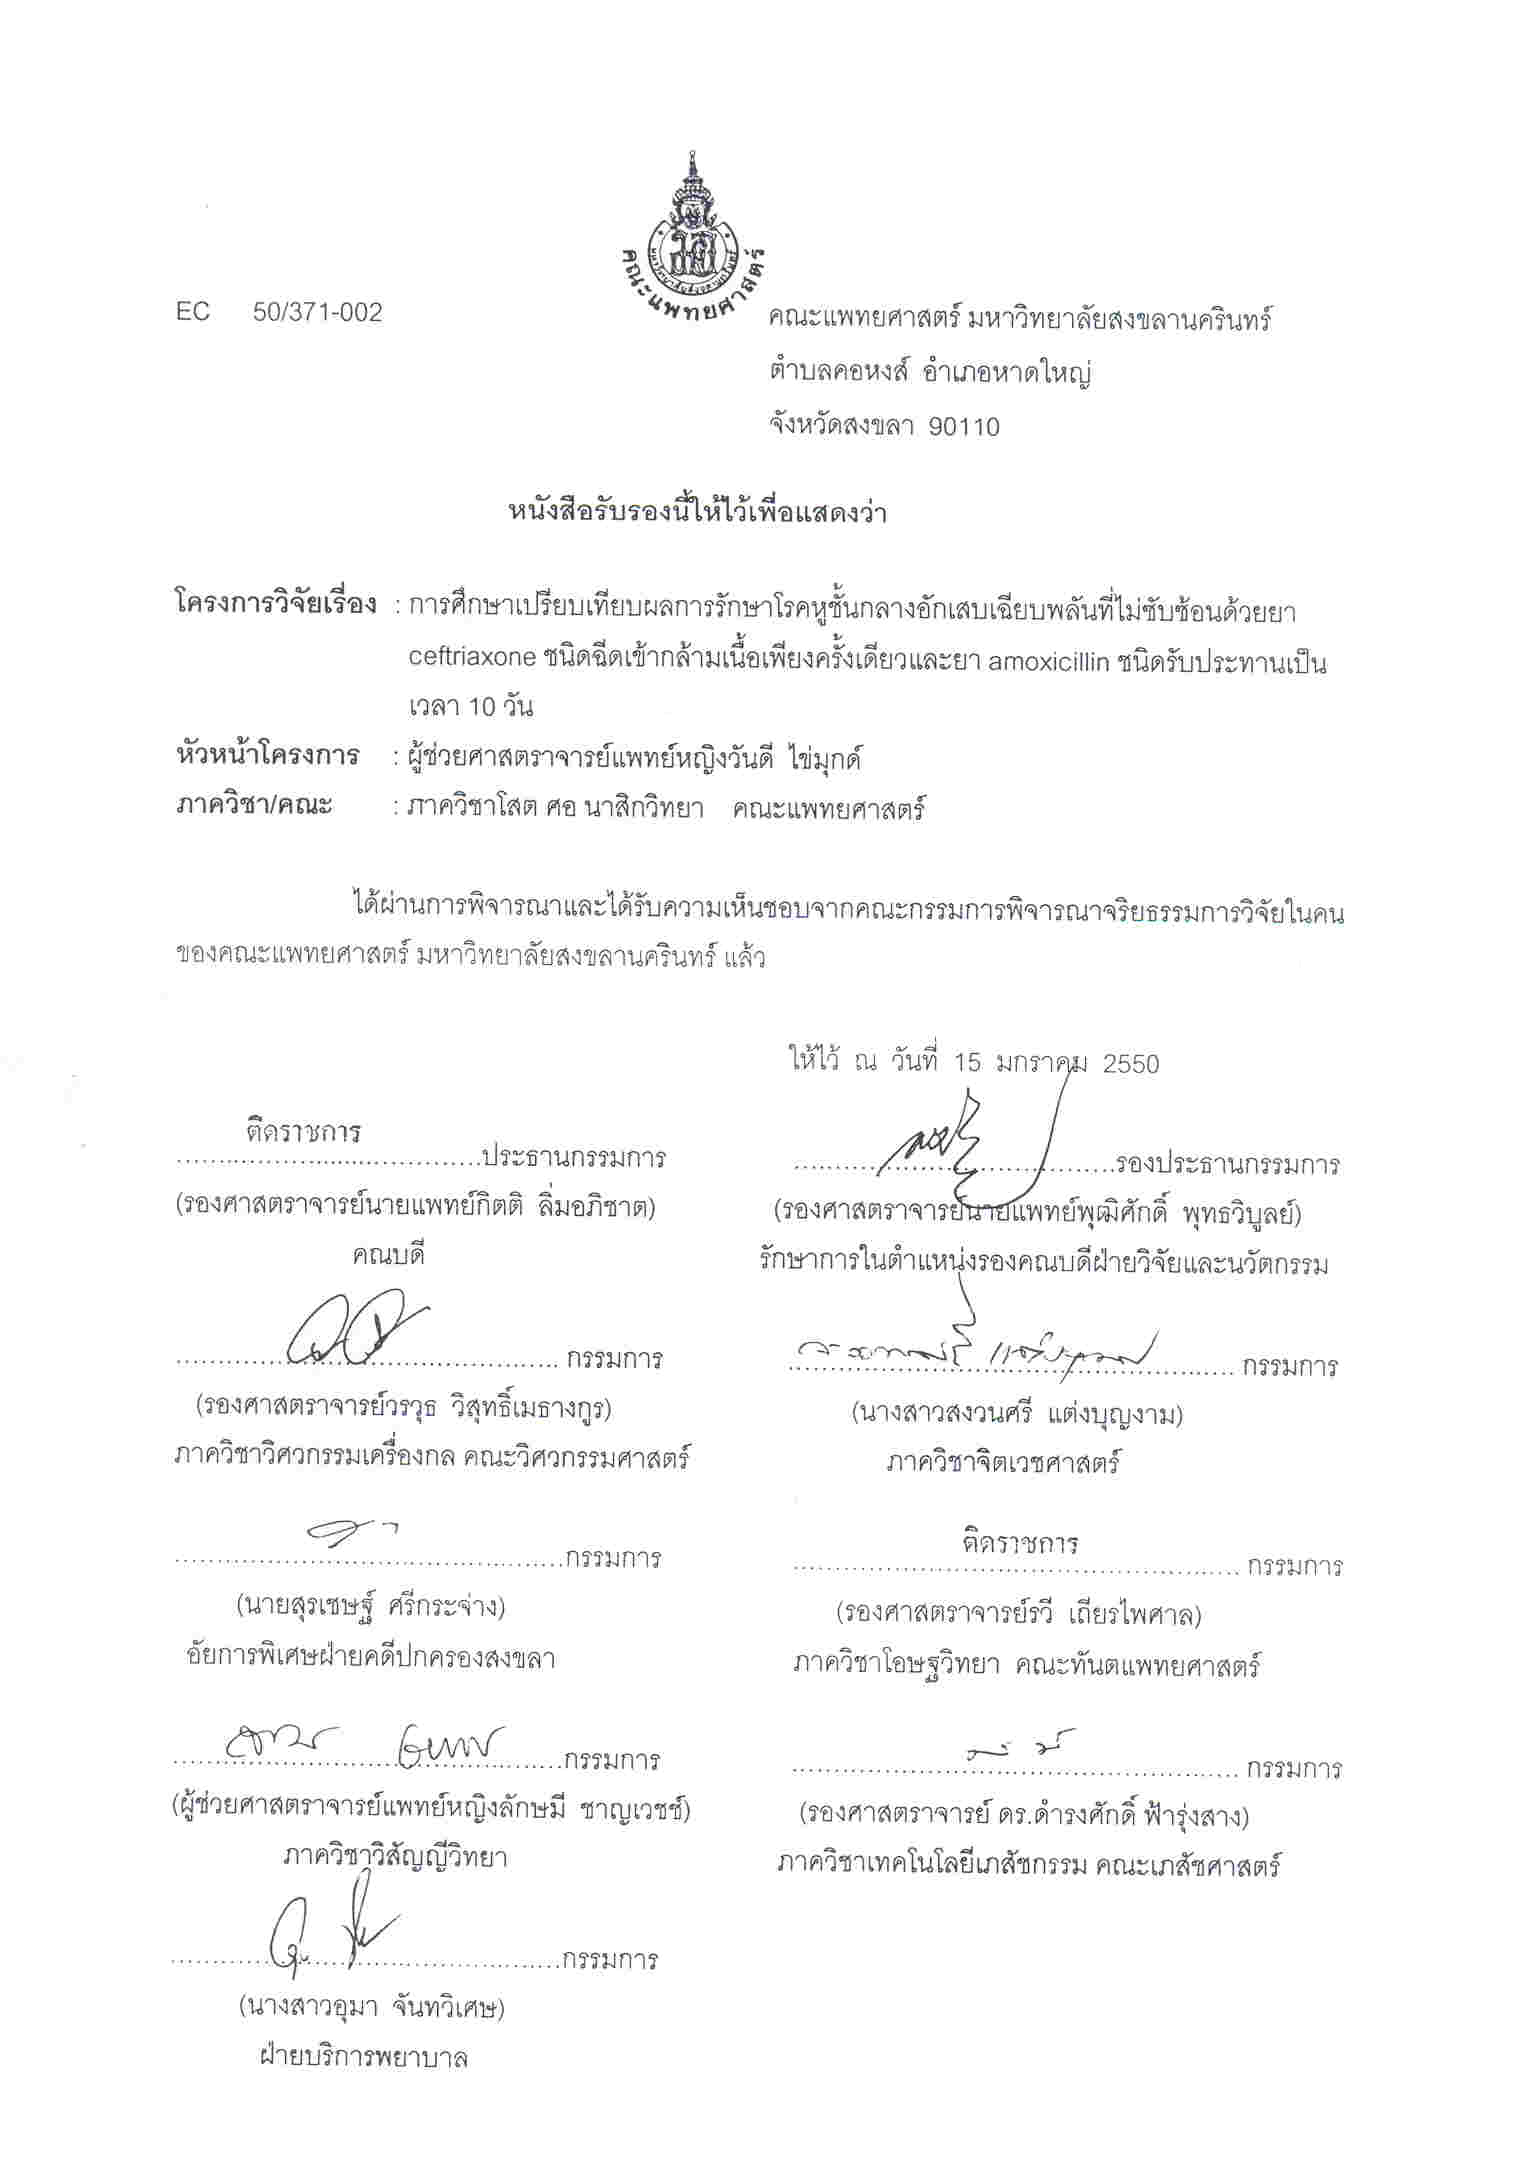 คณะแพทยศาสตร์
EC 50/371-002
คณะแพทยศาสตร์ มหาวิทยาลัยสงขลานครินทร์
ตำบลคอหงส์ อำเภอหาดใหญ่
จังหวัดสงขลา 90110
หนังสือรับรองนี้ให้ไว้เพื่อแสดงว่า
โครงการวิจัยเรื่อง : การศึกษาเปรียบเทียบผลการรักษาโรคหูชั้นกลางอักเสบเฉียบพลันที่ไม่ซับซ้อนด้วยยา
ceftriaxone ชนิดฉีดเข้ากล้ามเนื้อเพียงครั้งเดียวและยา amoxicillin ชนิดรับประทานเป็น
เวลา 10 วัน
หัวหน้าโครงการ : ผู้ช่วยศาสตราจารย์แพทย์หญิงวันดี ไข่มุกด์
ภาควิชา/คณะ : ภาควิชาโสต ศอ นาสิกวิทยา คณะแพทยศาสตร์
ได้ผ่านการพิจารณาและได้รับความเห็นชอบจากคณะกรรมการพิจารณาจริยธรรมการวิจัยในคน
ของคณะแพทยศาสตร์ มหาวิทยาลัยสงขลานครินทร์ แล้ว
ให้ไว้ ณ วันที่ 15 มกราคม 2550
ติดราชการ
....................................ประธานกรรมการ
(รองศาสตราจารย์นายแพทย์กิตติ ลิ่มอภิชาต)
คณบดี
....................................รองประธานกรรมการ
(รองศาสตราจารย์นายแพทย์พุฒิศักดิ์ พุทธวิบูลย์)
รักษาการในตำแหน่งรองคณบดีฝ่ายวิจัยและนวัตกรรม
.............................................. กรรมการ
(รองศาสตราจารย์วรวุธ วิสุทธิ์เมธางกูร)
ภาควิชาวิศวกรรมเครื่องกล คณะวิศวกรรมศาสตร์
.............................................. กรรมการ
(นางสาวสงวนศรี แต่งบุญงาม)
ภาควิชาจิตเวชศาสตร์
..............................................กรรมการ
(นายสุรเชษฐ์ ศรีกระจ่าง)
อัยการพิเศษฝ่ายคดีปกครองสงขลา
ติดราชการ
.............................................. กรรมการ
(รองศาสตราจารย์รวี เถียรไพศาล)
ภาควิชาโอษฐวิทยา คณะทันตแพทยศาสตร์
..............................................กรรมการ
(ผู้ช่วยศาสตราจารย์แพทย์หญิงลักษมี ชาญเวชช์)
ภาควิชาวิสัญญีวิทยา
.............................................. กรรมการ
(รองศาสตราจารย์ ดร.ดำรงศักดิ์ ฟ้ารุ่งสาง)
ภาควิชาเทคโนโลยีเภสัชกรรม คณะเภสัชศาสตร์
..............................................กรรมการ
(นางสาวอุมา จันทวิเศษ)
ฝ่ายบริการพยาบาล